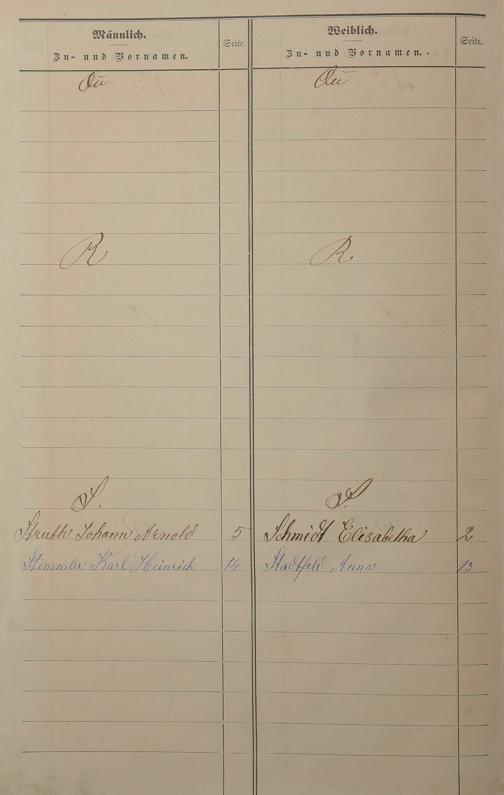 Männlich.
Zu- und Vornamen.
Seite.
Weiblich.
Zu- und Vornamen.
Seite.
Qu
Qu
R
R
S.
S.
Struth Johann Arnold 5
Schmidt Elisabetha 2
Stemmler Karl Heinrich 14
Stadtfeld Anna 13